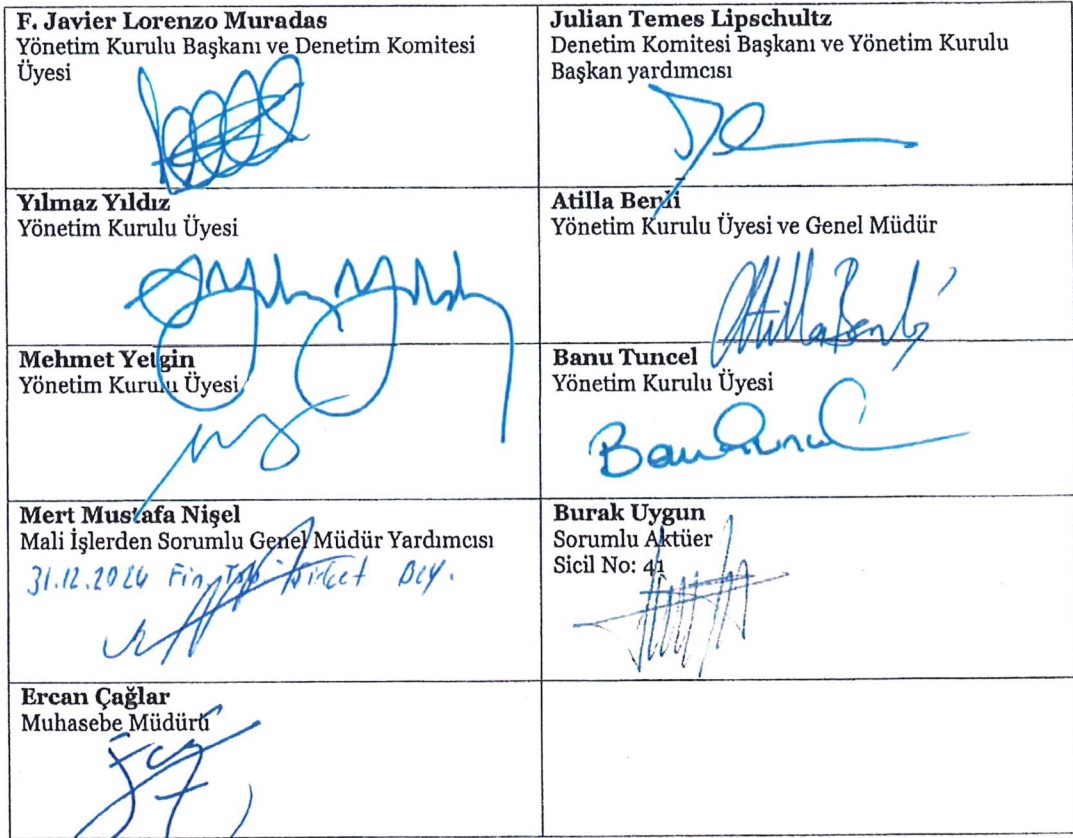 F. Javier Lorenzo Muradas
Yönetim Kurulu Başkanı ve Denetim Komitesi
Üyesi
Julian Temes Lipschultz
Denetim Komitesi Başkanı ve Yönetim Kurulu
Başkan yardımcısı
Yılmaz Yıldız
Yönetim Kurulu Üyesi
Atilla Benli
Yönetim Kurulu Üyesi ve Genel Müdür
Atilla Benli
Mehmet Yetgin
Yönetim Kurulu Üyesi
Banu Tuncel
Yönetim Kurulu Üyesi
Mert Mustafa Nişel
Mali İşlerden Sorumlu Genel Müdür Yardımcısı
31.12.2024 Fin
Burak Uygun
Sorumlu Aktüer
Sicil No: 41
Ercan Çağlar
Muhasebe Müdürü